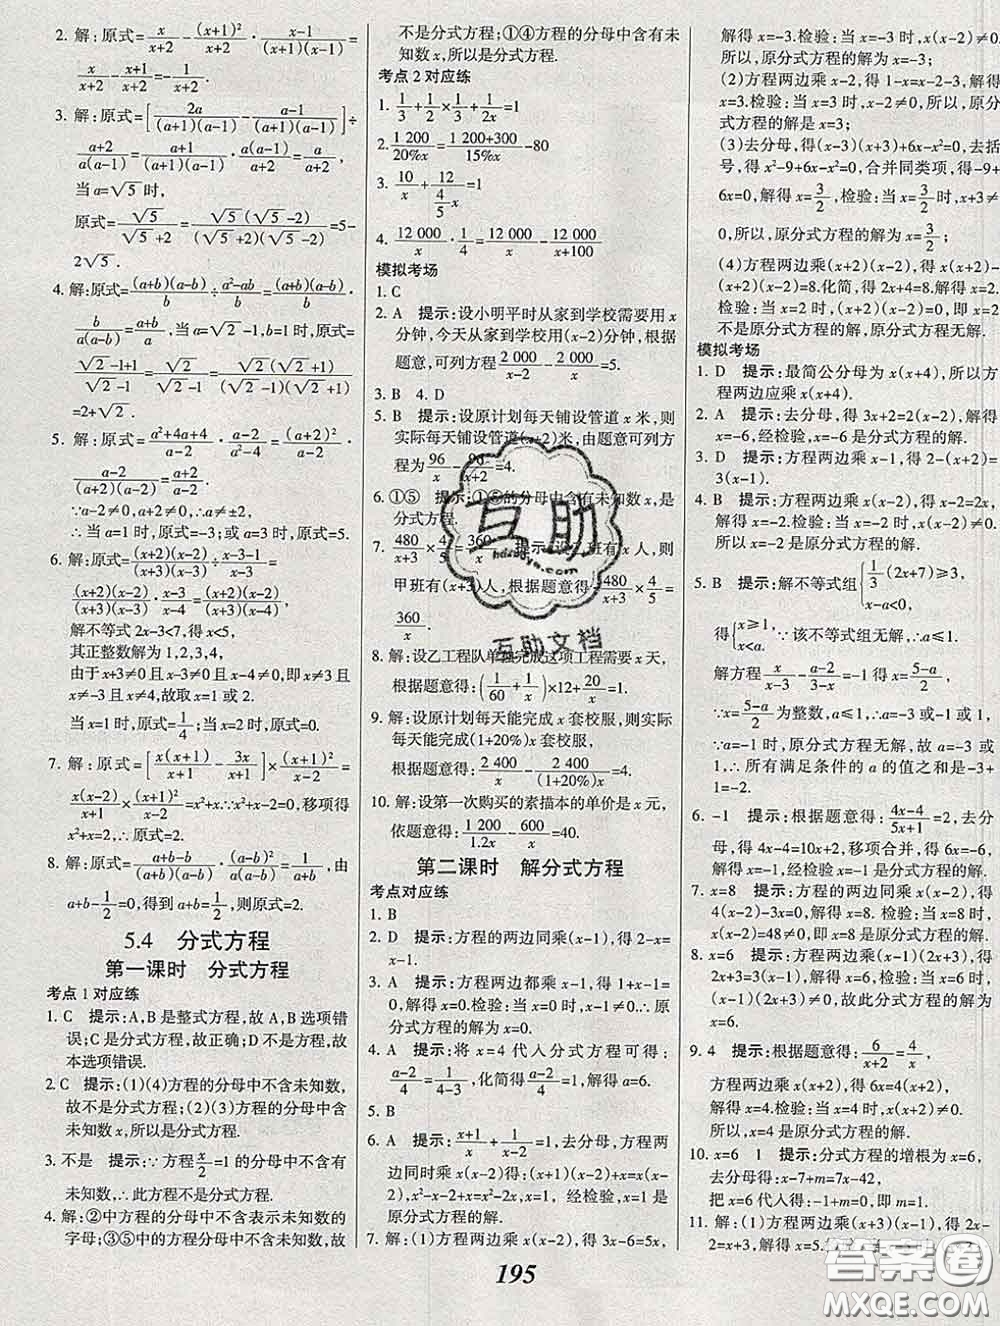 2. 解:原式=x/(x+2)-(x+1)²/(x+2)·(x-1)/((x+1)(x-1))=
x/(x+2)-(x+1)/(x+2)=-1/(x+2).
3. 解:原式=[2a/((a+1)(a-1))-(a-1)/((a+1)(a-1))]÷
(a+2)/(a(a-1))=(a+1)/((a+1)(a-1))·a(a-1)/(a+2)=a/(a+2).
当a=√5时,
原式=√5/(√5+2)=√5(√5-2)/((√5+2)(√5-2))=5-
2√5.
4. 解:原式=(a+b)(a-b)/b÷(a²-ab)/b=(a+b)(a-b)/b·
b/(a(a-b))=(a+b)/a,当a=√2-1,b=1时,原式=
(√2-1+1)/(√2-1)=√2/(√2-1)=√2(√2+1)/((√2-1)(√2+1))
=2+√2.
5. 解:原式=(a²+4a+4)/(a-2)·(a-2)/(a²-4)=(a+2)²/(a-2)·
(a-2)/((a+2)(a-2))=(a+2)/(a-2).
∵a-2≠0,a+2≠0,∴a≠±2,
∴当a=1时,原式=-3;或当a=3时,原式=5.
6. 解:原式=(x+2)(x-2)/(x(x-2))÷(x-3-1)/(x-3)=
(x+2)(x-2)/(x-3)·(x-3)/((x+2)(x-2))=1/(x-2).
解不等式2x-3<7,得x<5.
其正整数解为1,2,3,4,
由于x+3≠0且x-3≠0且x-2≠0,即x
≠-3且x≠3且x≠2,
当x=1时,原式=1/4;当x=2时,原式=1/5.
7. 解:原式=[x(x+1)/(x+1)-3x/(x+1)]×(x+1)²/(x-2)=
x(x-2)/(x+1)×(x+1)²/(x-2)=x²+x.∵x²=2-x,移项得
x²+x=2,∴原式=2.
8. 解:原式=(a+b-b)/(a(a-b))·(a-b)²/a=(a-b)/1,由
a+b-1/2=0,得到a+b=1/2,则原式=2.
5.4 分式方程
第一课时 分式方程
考点1对应练
1. C 提示:A,B是整式方程,故A,B选项错
误;C是分式方程,故正确;D不是方程,故
本选项错误.
2. C 提示:(1)(4)方程的分母中不含未知数,
故不是分式方程;(2)(3)方程的分母中含未知
数,所以是分式方程.
3. 不是 提示:∵方程x/2=1的分母中不含有
未知数,∴此方程不是分式方程.
4. 解:②中方程的分母中不含表示未知数的
字母;③⑤中的方程分母中不含有未知数,故
不是分式方程;①④方程的分母中含有未
知数x,所以是分式方程.
考点2对应练
1. (1/3+1/2)×1/3+1/2x=1
2. 1 200/20%x=(1 200+300)/15%x-80
3. 10/x+12/(4/5 x)=1
4. 12 000/x·1/4=12 000/x-12 000/(x+100)
模拟考场
1. C
2. A 提示:设小明平时从家到学校需要用x
分钟,今天从家到学校用(x-2)分钟,根据
题意,可列方程2 000/(x-2)-2 000/x=5.
3. B 4. D
5. B 提示:设原计划每天铺设管道x米,则
实际每天铺设管道(x+2)米,由题意可列方
程为96/x-96/(x+2)=4.
6. ①⑤ 提示:①⑤的分母中含有未知数x,是
分式方程.
7. 480/(x+3)×4/5=360/x 提示:设乙班有x人,则
甲班有(x+3)人,根据题意得:480/(x+3)×4/5=
360/x.
8. 解:设乙工程队单独完成这项工程需要x天,
根据题意得:(1/60+1/x)×12+20/x=1.
9. 解:设原计划每天能完成x套校服,则实际
每天能完成(1+20%)x套校服,
根据题意得:2 400/x-2 400/((1+20%)x)=4.
10. 解:设第一次购买的素描本的单价是x元,
依题意得:1 200/1.2x-600/x=40.
第二课时 解分式方程
考点对应练
1. B
2. D 提示:方程的两边同乘(x-1),得2-x=x-1.
3. A 提示:方程两边都乘x-1,得1+x-1=
0,解得x=0.检验:当x=0时,x-1≠0.∴原
分式方程的解为x=0.
4. A 提示:将x=4代入分式方程可得:
(a-2)/4=1/(4-3),化简得(a-2)/4=1,解得a=6.
5. B
6. A 提示:(x+1)/x+1/(x-2)=1,去分母,方程
两边同时乘x(x-2)得:(x+1)(x-2)+x=x(x-
2),x²-x-2+x=x²-2x,x=1,经检验,x=1是
原分式方程的解.
7. 解:(1)方程两边乘x(x-2),得3x-6=5x,
解得x=-3.检验:当x=-3时,x(x-2)≠0.
所以,原分式方程的解为x=-3.
(2)方程两边乘x-2,得1-x=x-2-3,解得
x=3.检验:当x=3时,x-2≠0,所以,原分
式方程的解是x=3;
(3)去分母,得(x-3)(x+3)+6x-x²=0,去括
号,得x²-9+6x-x²=0,合并同类项,得-9+
6x=0,解得x=3/2,检验:当x=3/2时,x+3≠
0,所以,原分式方程的解为x=3/2;
(4)方程两边乘(x+2)(x-2),得x(x+2)-
(x+2)(x-2)=8.化简,得2x+4=8.解得x=2.
检验:当x=2时,(x+2)(x-2)=0,即x=2
不是原分式方程的解,原分式方程无解.
模拟考场
1. D 提示:最简公分母为x(x+4),所以方
程两边应乘x(x+4).
2. A 提示:去分母,得3x+2=2(x-2),解得
x=-6,经检验,x=-6是分式方程的解.
3. D 提示:方程两边乘x-1,得2-(x+2)=
3(x-1).
4. B 提示:方程两边乘(x-2),得x-2=2x,
解得x=-2.所以x=-2是原分式方程的解.
5. B 提示:解不等式组{1/3(2x+7)≥3,
x-a<0,
得{x≥1,
x<a. ∵该不等式组无解,∴a≤1.
解方程x/(x-3)-(a-2)/(3-x)=-1,得x=(5-a)/2.
∵x=(5-a)/2为整数,a≤1,∴a=-3或-1或1,
∵a=-1时,原分式方程无解,故a=-3或
1,∴所有满足条件的a的值之和是-3+
1=-2.
6. -1 提示:根据题意得:(4x-4)/(5x+1)=2,去分
母,得4x-4=10x+2,移项合并,得6x=-6,
解得x=-1,经检验x=-1是分式方程的解.
7. x=8 提示:方程的两边同乘x(x-2),得
4(x-2)-3x=0,解得x=8.检验:当x=8时,
x(x-2)=48≠0,即x=8是原分式方程的解.
8. x=6 提示:方程两边乘(x-1)(2x+3),得
2x+3=3(x-1),解得x=6,检验:当x=6时,
(x-1)(2x+3)≠0,故此分式方程的解为
x=6.
9. 4 提示:根据题意得:6/(x+2)=4/x,
方程两边乘x(x+2),得6x=4(x+2),
解得x=4.检验:当x=4时,x(x+2)≠0.
所以,x=4是原分式方程的解.
10. x=6 1 提示:分式方程的增根为x=6,
去分母得:2x-5-x+m=7x-42,
把x=6代入得:1+m=0,即m=1.
11. 解:(1)方程两边乘(x+3)(x-1),得2x-
2=x+3,解得x=5.
195
互助
hdzuoye.com
互助文档
答案圈
MXQE.COM